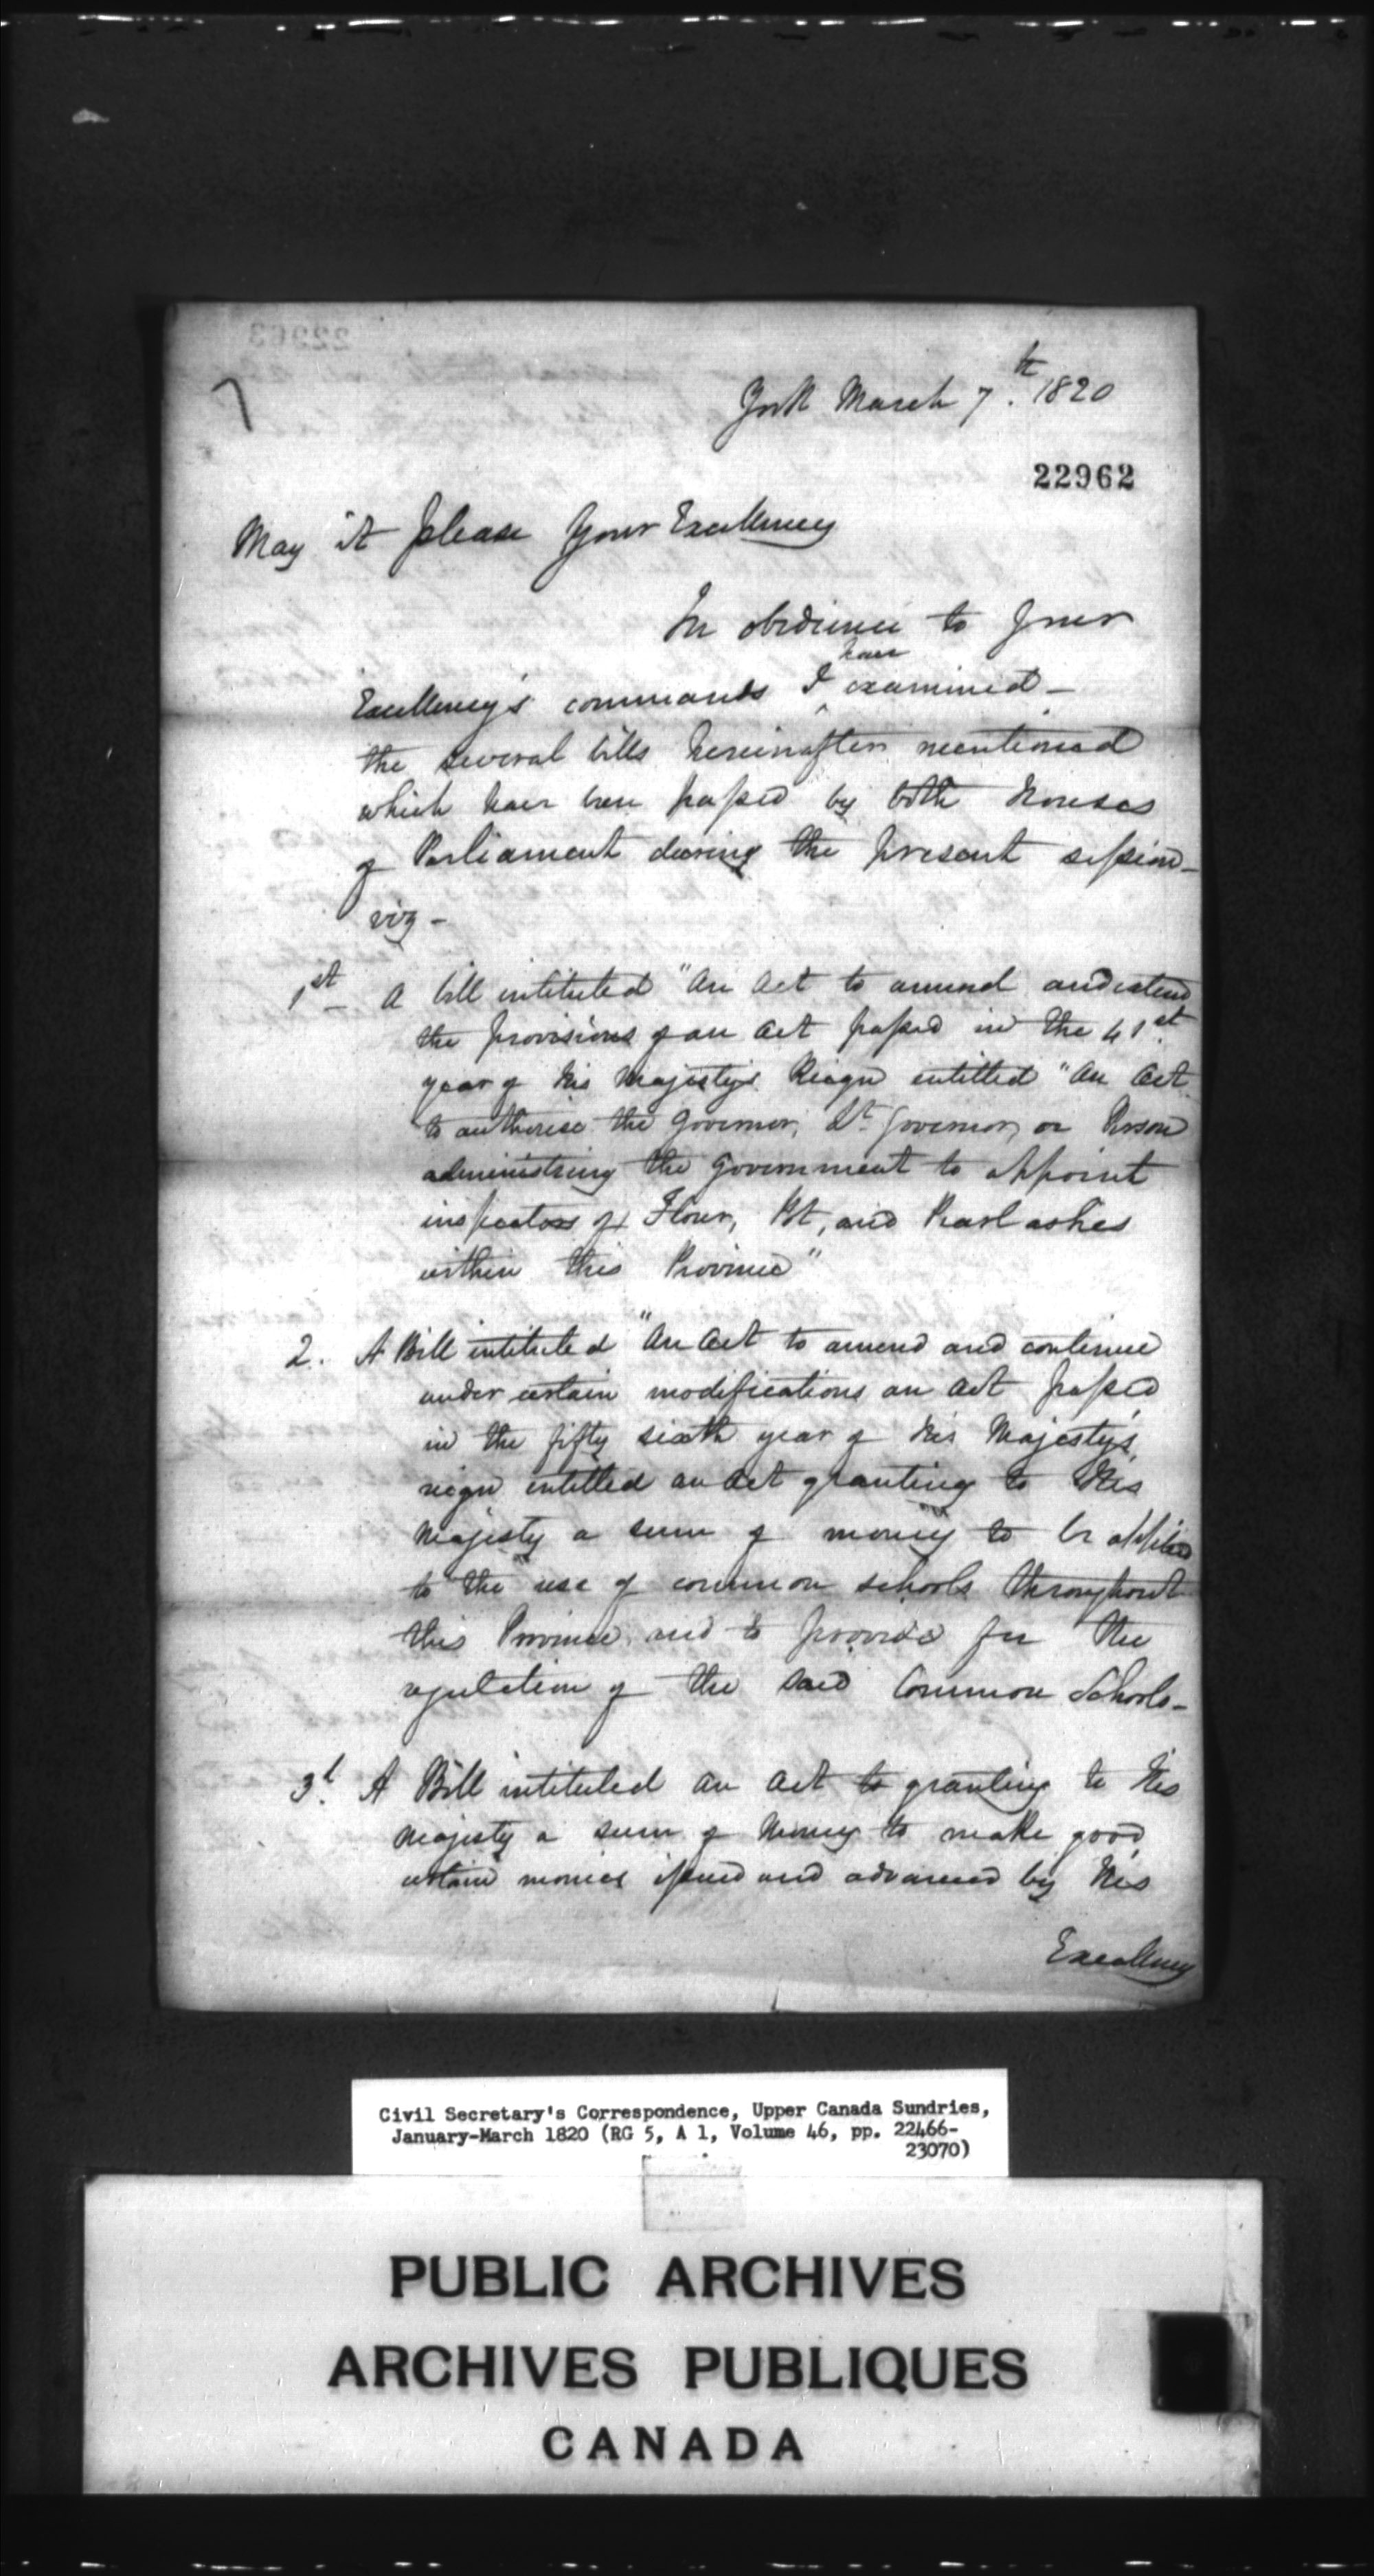 22963
7
York March 7th. 1820
22962
May it please Your Excellency
In obedience to Your
have
Excellency's commands I ^ examined -
the several bills hereinafter mentioned
which have been passed by both Houses
of Parliament during the present session -
viz -
1st - A bill intituled "An Act to amend and extend
the provisions of an Act passed in the 41st
year of His Majesty's Reign entitled "An Act
to authorise the Governor, Lt. Governor, or Person
administring the Government to appoint
inspectors of Flour, Pot, and Pearl ashes
within this Province"
2. A Bill intituled "An Act to amend and continue
under certain modifications an Act passed
in the fifty sixth year of His Majesty's
reign intitled an Act granting to His
Majesty a sum of money to be applied
to the use of common schools throughout
this Province and to provide for the
regulation of the said Common Schools -
3d. A Bill intituled an Act to granting to His
Majesty a sum of Money to make good
certain monies issued and advanced by His
Excellency
Civil Secretary's Correspondence, Upper Canada Sundries,
January-March 1820 (RG 5, A 1, Volume 46, pp. 22466-
23070)
PUBLIC ARCHIVES
ARCHIVES PUBLIQUES
CANADA